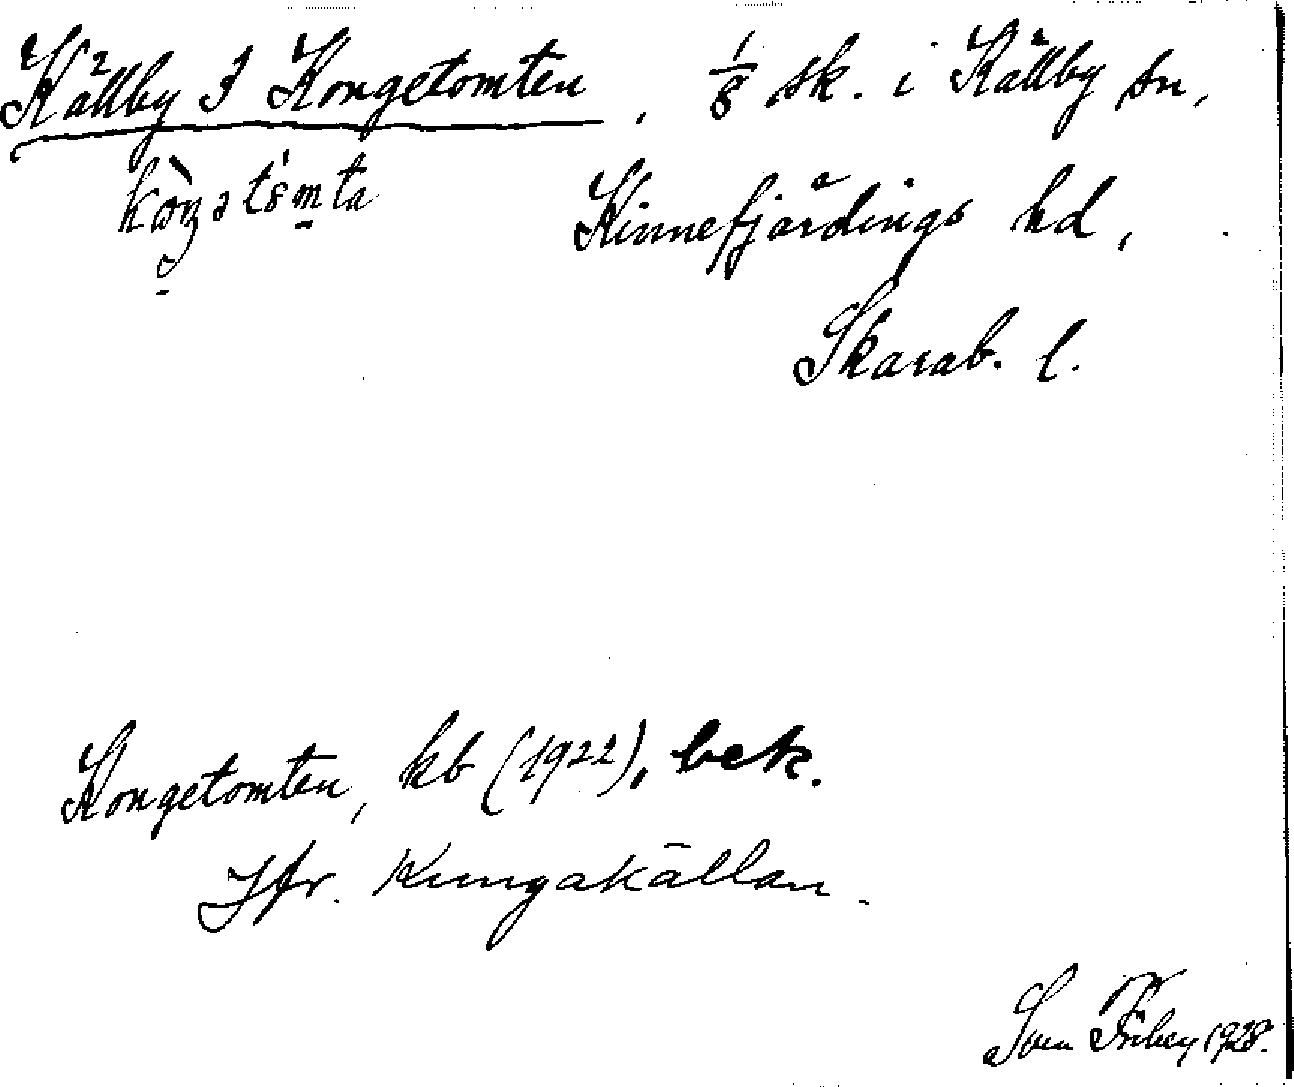 Källby 3 Kongetomten, 1/8 sk. i Källby sn,
Kinnefjärdings hd,
Skarab. l.
Kongetomten, kb (1922), bek.
Jfr. Kungakällan.
Sven Fribey 1928.